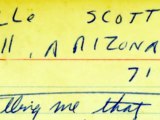 LLO SCOTT
ll, ARIZONA
71
lling me that